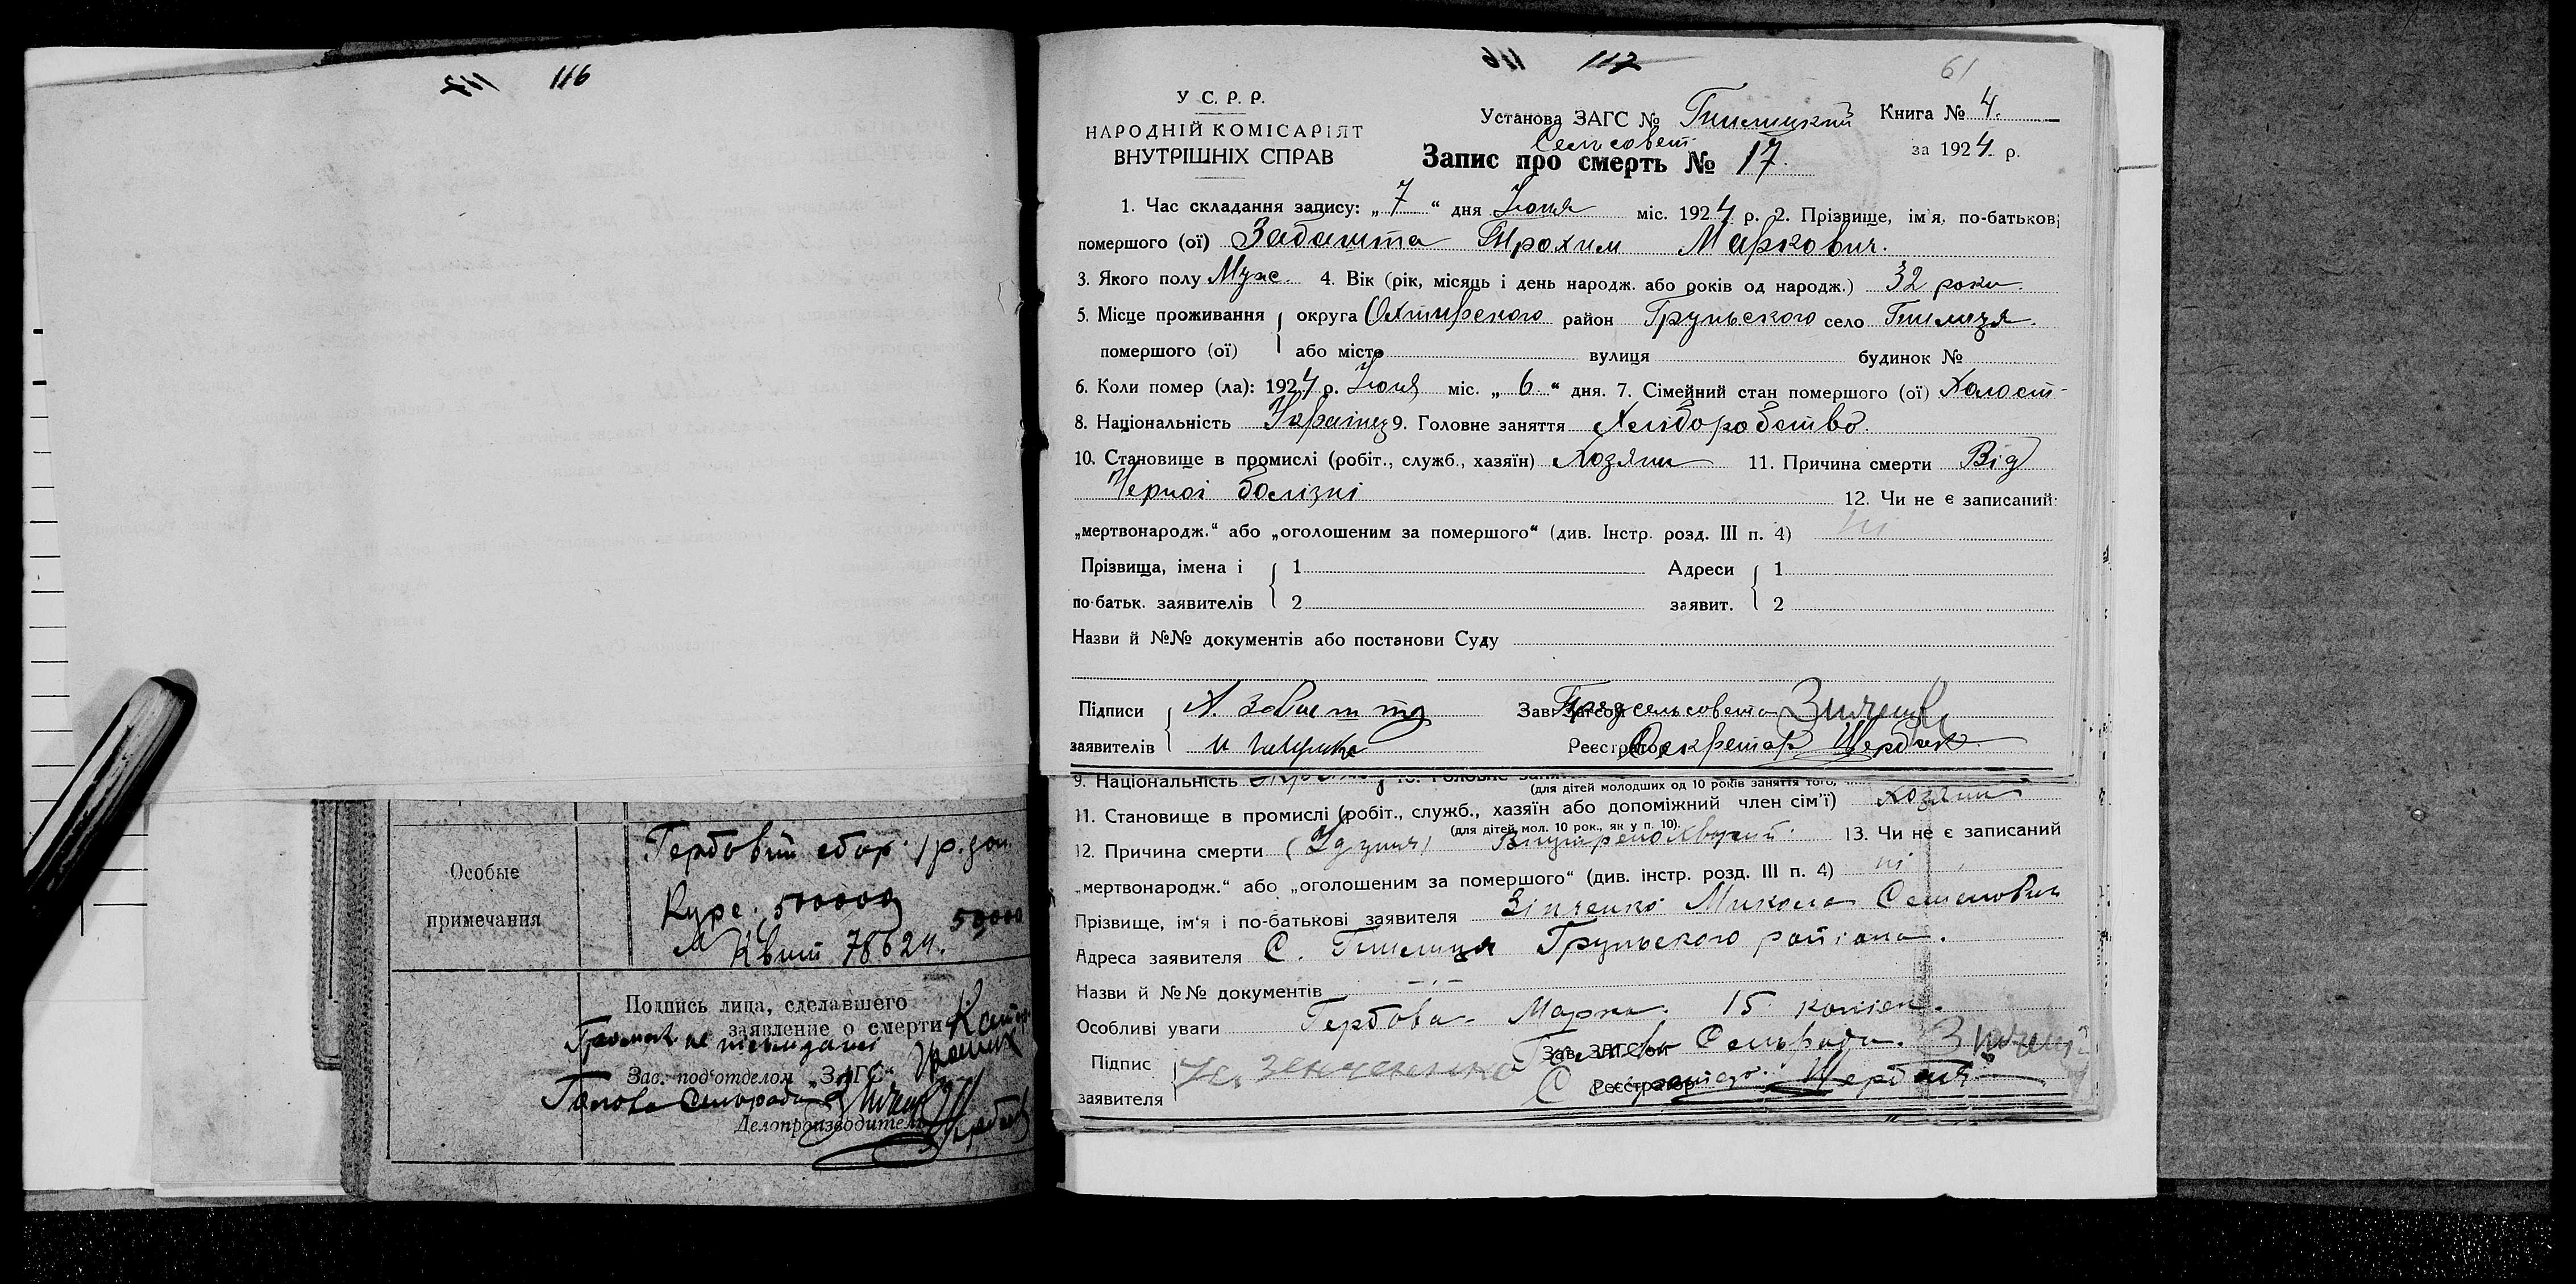 112 116
Особые
примечания
Гербовий сбор. 1 р. зол.
Курс. 500000
50,000
Квит 78624.
Подпись лица, сделавшего
заявление о смерти
Зав. подотделом „ЗАГС“
Голова Сельради
Делопроизводитель
116 112 61
У С. Р. Р.
НАРОДНІЙ КОМІСАРІЯТ
ВНУТРІШНІХ СПРАВ
Установа ЗАГС № Гнилицкий Книга № 4.
Сельсовет
Запис про смерть № 17. за 1924 р.
1. Час складання запису: „ 7 “ дня Июня міс. 1924 р. 2. Прізвище, ім'я, по-батькові
помершого (ої) Забашта Трохим Маркович.
3. Якого полу Муже. 4. Вік (рік, місяць і день народж. або років од народж.) 32 роки.
5. Місце проживання округа Охтирського район Груньского село Гнилиця.
помершого (ої) або місто вулиця будинок №
6. Коли помер (ла): 1924 р. Июня міс. „ 6. “ дня. 7. Сімейний стан помершого (ої) Холост-
8. Національність Українец 9. Головне заняття Хліборобство.
10. Становище в промислі (робіт., служб., хазяїн) Хозяин 11. Причина смерти Від
Черної болізні 12. Чи не є записаний:
„мертвонародж.“ або „оголошеним за помершого“ (див. Інстр. розд. III п. 4) ні
Прізвища, імена і 1 Адреси 1
по-батьк. заявителів 2 заявит. 2
Назви й №№ документів або постанови Суду
Підписи Зав. Загсом Предсельсовета
заявителів Реєстратор Секретар Щербак
9. Національність
(для дітей молодших од 10 років заняття того,
11. Становище в промислі (робіт., служб., хазяїн або допоміжний член сім'ї) Хозяин
(для дітей мол. 10 рок., як у п. 10).
12. Причина смерти 13. Чи не є записаний
„мертвонародж.“ або „оголошеним за помершого“ (див. інстр. розд. III п. 4) ні
Прізвище, ім'я і по-батькові заявителя Зінченко Микола Семенович
Адреса заявителя С. Гнилиця Груньского району.
Назви й №№ документів
Особливі уваги Гербова Марка. 15 копієк.
Підпис Зав. ЗАГСом Голова Сельради.
заявителя Реєстратор Щербак